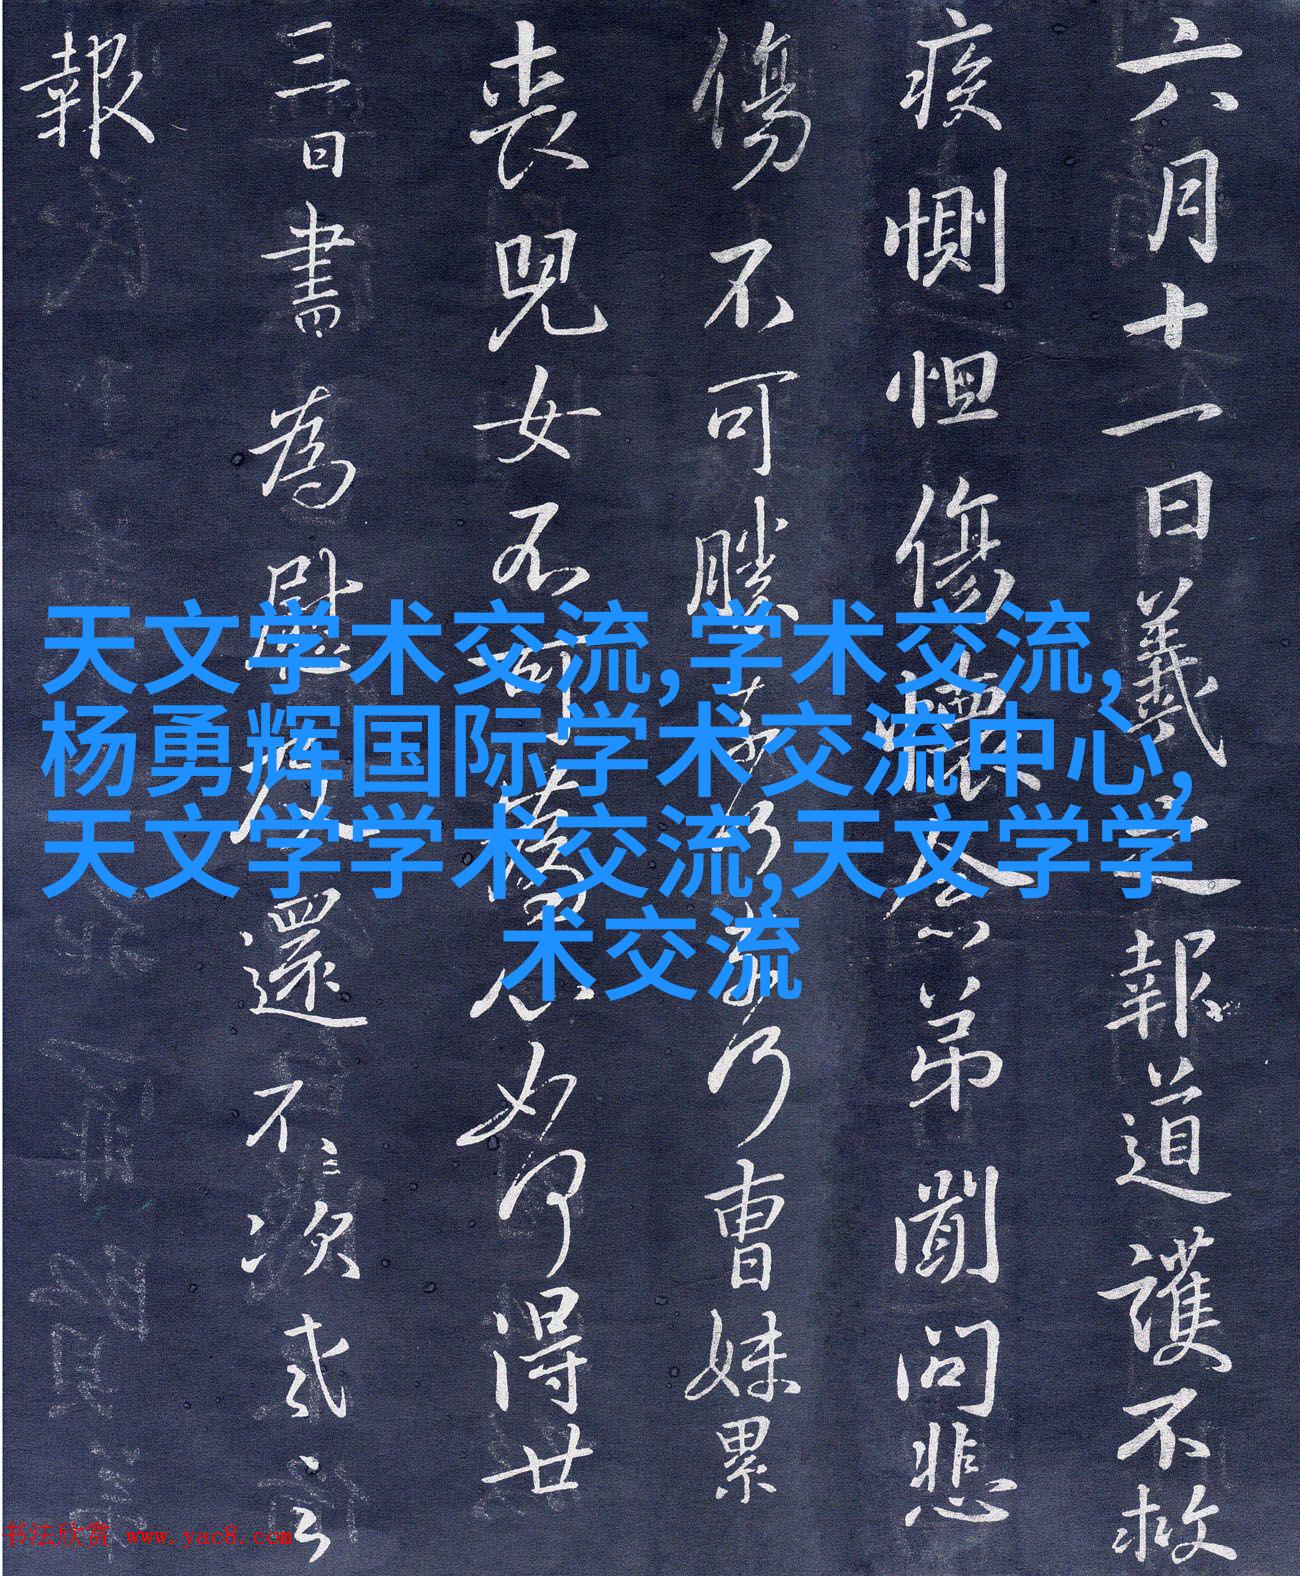 天文学术交流,学术交流,
杨勇辉国际学术交流中心,
天文学学术交流,天文学学
术交流
六月十一日羲之報道護不救
疾惻怛傷懷念弟聞問悲
傷不可勝奈何奈何曹妹累
喪兒女不可為心如何得廿
三日書為慰及還不次
報
书法欣赏 www.yac8.com